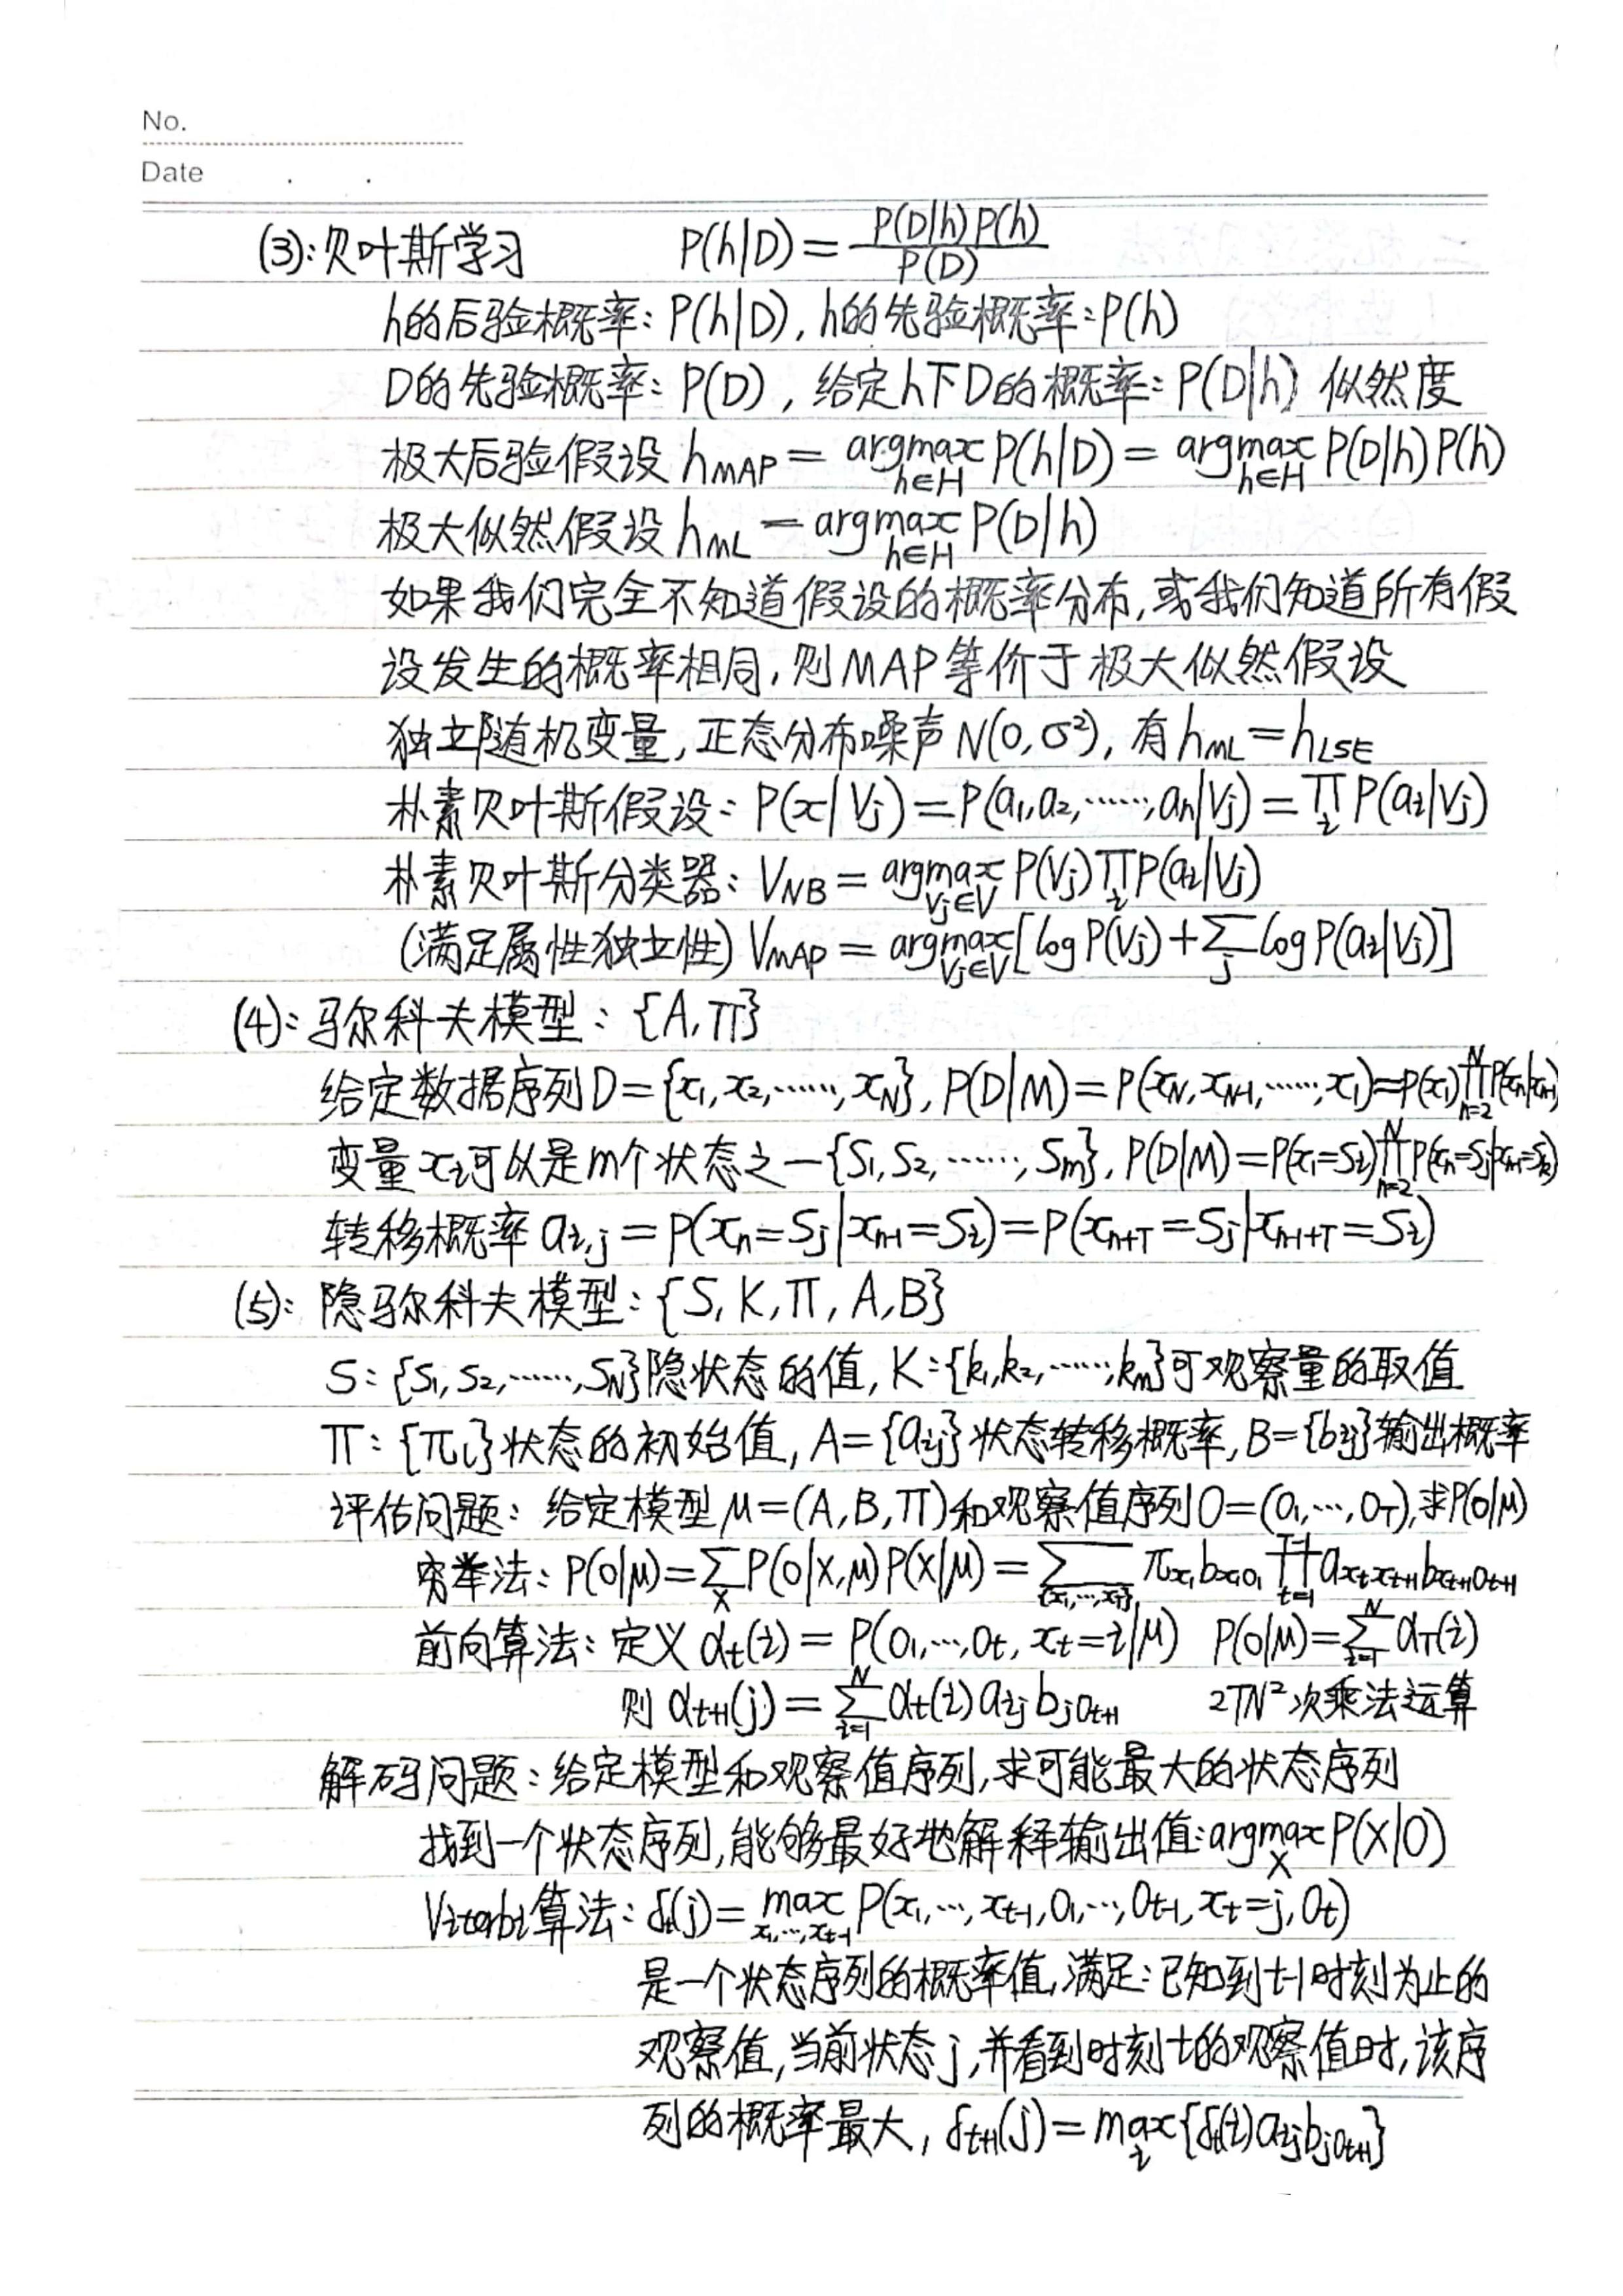 No.
Date . .
(3):贝叶斯学习 P(h|D)=P(D|h)P(h)/P(D)
h的后验概率:P(h|D),h的先验概率:P(h)
D的先验概率:P(D),给定h下D的概率:P(D|h) 似然度
极大后验假设 h_MAP = argmax_{h∈H} P(h|D) = argmax_{h∈H} P(D|h)P(h)
极大似然假设 h_ML = argmax_{h∈H} P(D|h)
如果我们完全不知道假设的概率分布,或我们知道所有假
设发生的概率相同,则MAP等价于极大似然假设
独立随机变量,正态分布噪声N(0,σ²),有h_ML=h_LSE
朴素贝叶斯假设:P(x|Vj)=P(a₁,a₂,……,an|Vj)=∏_i P(ai|Vj)
朴素贝叶斯分类器:V_NB = argmax_{Vj∈V} P(Vj)∏_i P(ai|Vj)
(满足属性独立性) V_MAP = argmax_{Vj∈V}[log P(Vj)+∑_j log P(ai|Vj)]
(4):马尔科夫模型:{A,π}
给定数据序列D={x₁,x₂,……,x_N},P(D|M)=P(x_N,x_{N-1},……,x₁)=P(x₁)∏_{n=2}^{N} P(x_n|x_{n-1})
变量xi可以是m个状态之一{S₁,S₂,……,Sm},P(D|M)=P(x₁=Si)∏_{n=2}^{N} P(x_n=Sj|x_{n-1}=Sk)
转移概率 a_{i,j}=P(x_n=Sj|x_{n-1}=Si)=P(x_{n+T}=Sj|x_{n-1+T}=Si)
(5):隐马尔科夫模型:{S,K,π,A,B}
S:{S₁,S₂,……,S_N}隐状态的值,K:{k₁,k₂,……,k_m}可观察量的取值
π:{πi}状态的初始值,A={aij}状态转移概率,B={bij}输出概率
评估问题:给定模型μ=(A,B,π)和观察值序列O=(o₁,…,o_T),求P(O|μ)
穷举法:P(O|μ)=∑_X P(O|X,μ)P(X|μ)=∑_{{x₁,…,x_T}} π_{x₁}b_{x₁o₁}∏_{t=1}^{T-1} a_{x_t x_{t+1}}b_{x_{t+1}o_{t+1}}
前向算法:定义 α_t(i)=P(o₁,…,o_t,x_t=i|μ) P(O|μ)=∑_{i=1}^{N} α_T(i)
则 α_{t+1}(j)=∑_{i=1}^{N} α_t(i)a_{ij}b_{jo_{t+1}} 2TN²次乘法运算
解码问题:给定模型和观察值序列,求可能最大的状态序列
找到一个状态序列,能够最好地解释输出值:argmax_X P(X|O)
Viterbi算法:δ_t(j)=max_{x₁,…,x_{t-1}} P(x₁,…,x_{t-1},o₁,…,o_{t-1},x_t=j,o_t)
是一个状态序列的概率值,满足:已知到t-1时刻为止的
观察值,当前状态j,并看到时刻t的观察值时,该序
列的概率最大,δ_{t+1}(j)=max_i{δ_t(i)a_{ij}b_{jo_{t+1}}}